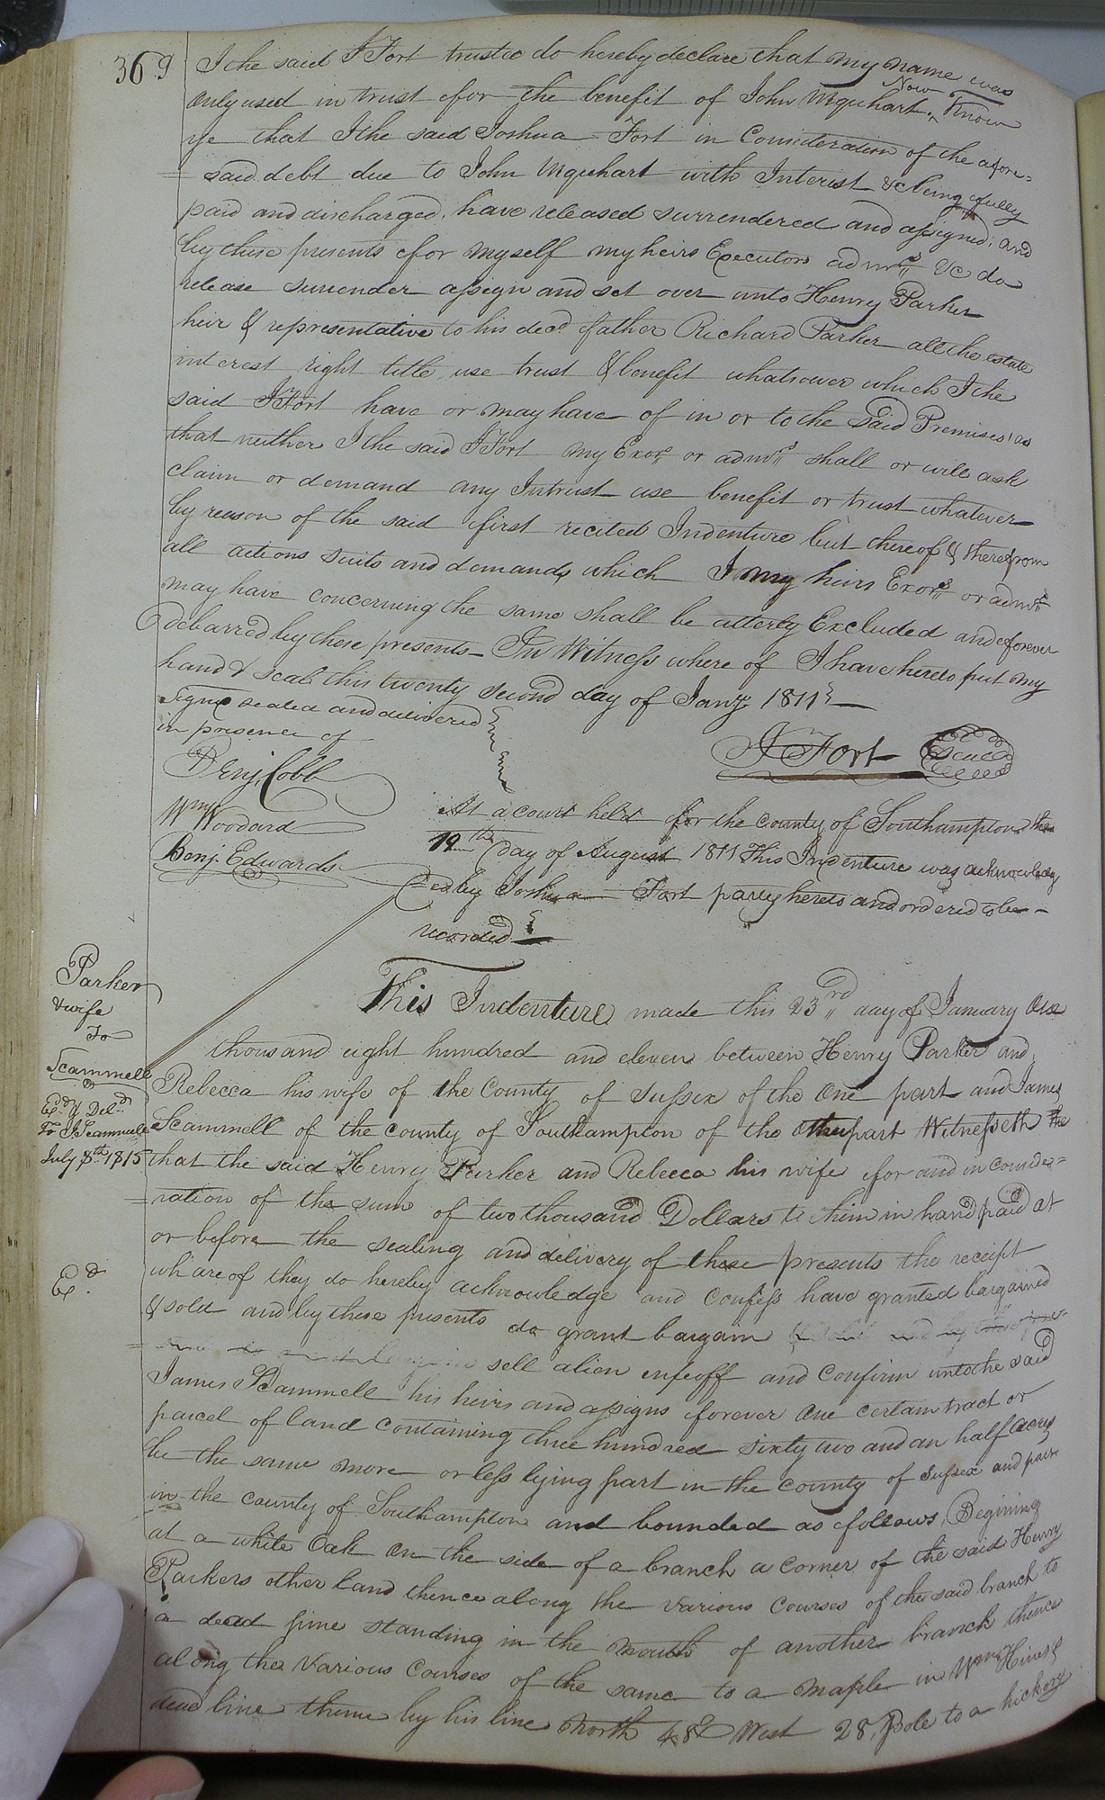 369
I the said J Fort trustee do hereby declare that my name was
only used in trust for the benefit of John Urquhart, Now Know
ye that I the said Joshua Fort in Consideration of the afore=
= said debt due to John Urquhart with Interest &c being fully
paid and discharged, have released surrendered and assigned, and
by these presents for myself my heirs Executors admrs &c do
release surrender assign and set over unto Henry Parker
heir & representative to his decd father Richard Parker all the estate
interest right title use trust & benefit whatsoever which I the
said J Fort have or may have of in or to the said Premises so
that neither I the said J Fort my Exors or admrs shall or will ask
claim or demand any Intrust use benefit or trust whatever
by reason of the said first recited Indenture but thereof & therefrom
all actions suits and demands which I my heirs Exors or admrs
may have concerning the same shall be utterly Excluded and forever
debarred by these presents In Witness where of I have hereto put my
hand & seal this twenty second day of Jany 1811
Signd sealed and delivered
in presence of
J Fort Seal
Benj. Cobb
Wm Woodard
Benj. Edwards
At a court held for the County of Southampton the
19th day of August 1811 This Indenture was acknowledg
ed by Joshua Fort party hereto and ordered to be
recorded
Parker
& wife
To
Scammell
Exd & Deld
To J. Scammell
July 8th 1815
Exd.
This Indenture made this 23rd day of January One
thousand eight hundred and eleven between Henry Parker and
Rebecca his wife of the County of Sussex of the One part and James
Scammell of the county of Southampton of the other part Witnesseth the
that the said Henry Parker and Rebecca his wife for and in conside=
= ration of the sum of two thousand Dollars to him in hand paid at
or before the sealing and delivery of these presents the receipt
whareof they do hereby acknowledge and Confess have granted bargained
& sold and by these presents do grant bargain
sell alien enfeoff and Confirm unto the said
James Scammell his heirs and assigns forever One certain tract or
parcel of land containing three hundred sixty two and an half acres
be the same more or less lying part in the county of Sussex and part
in the county of Southampton and bounded as follows, Begining
at a white Oak on the side of a branch a corner of the said Henry
Parkers other land thence along the various Courses of the said branch to
a dead pine standing in the mouth of another branch thence
along the Various Courses of the same to a maple in Wm Hines
line thence by his line North 48 West 28 Pole to a hickory